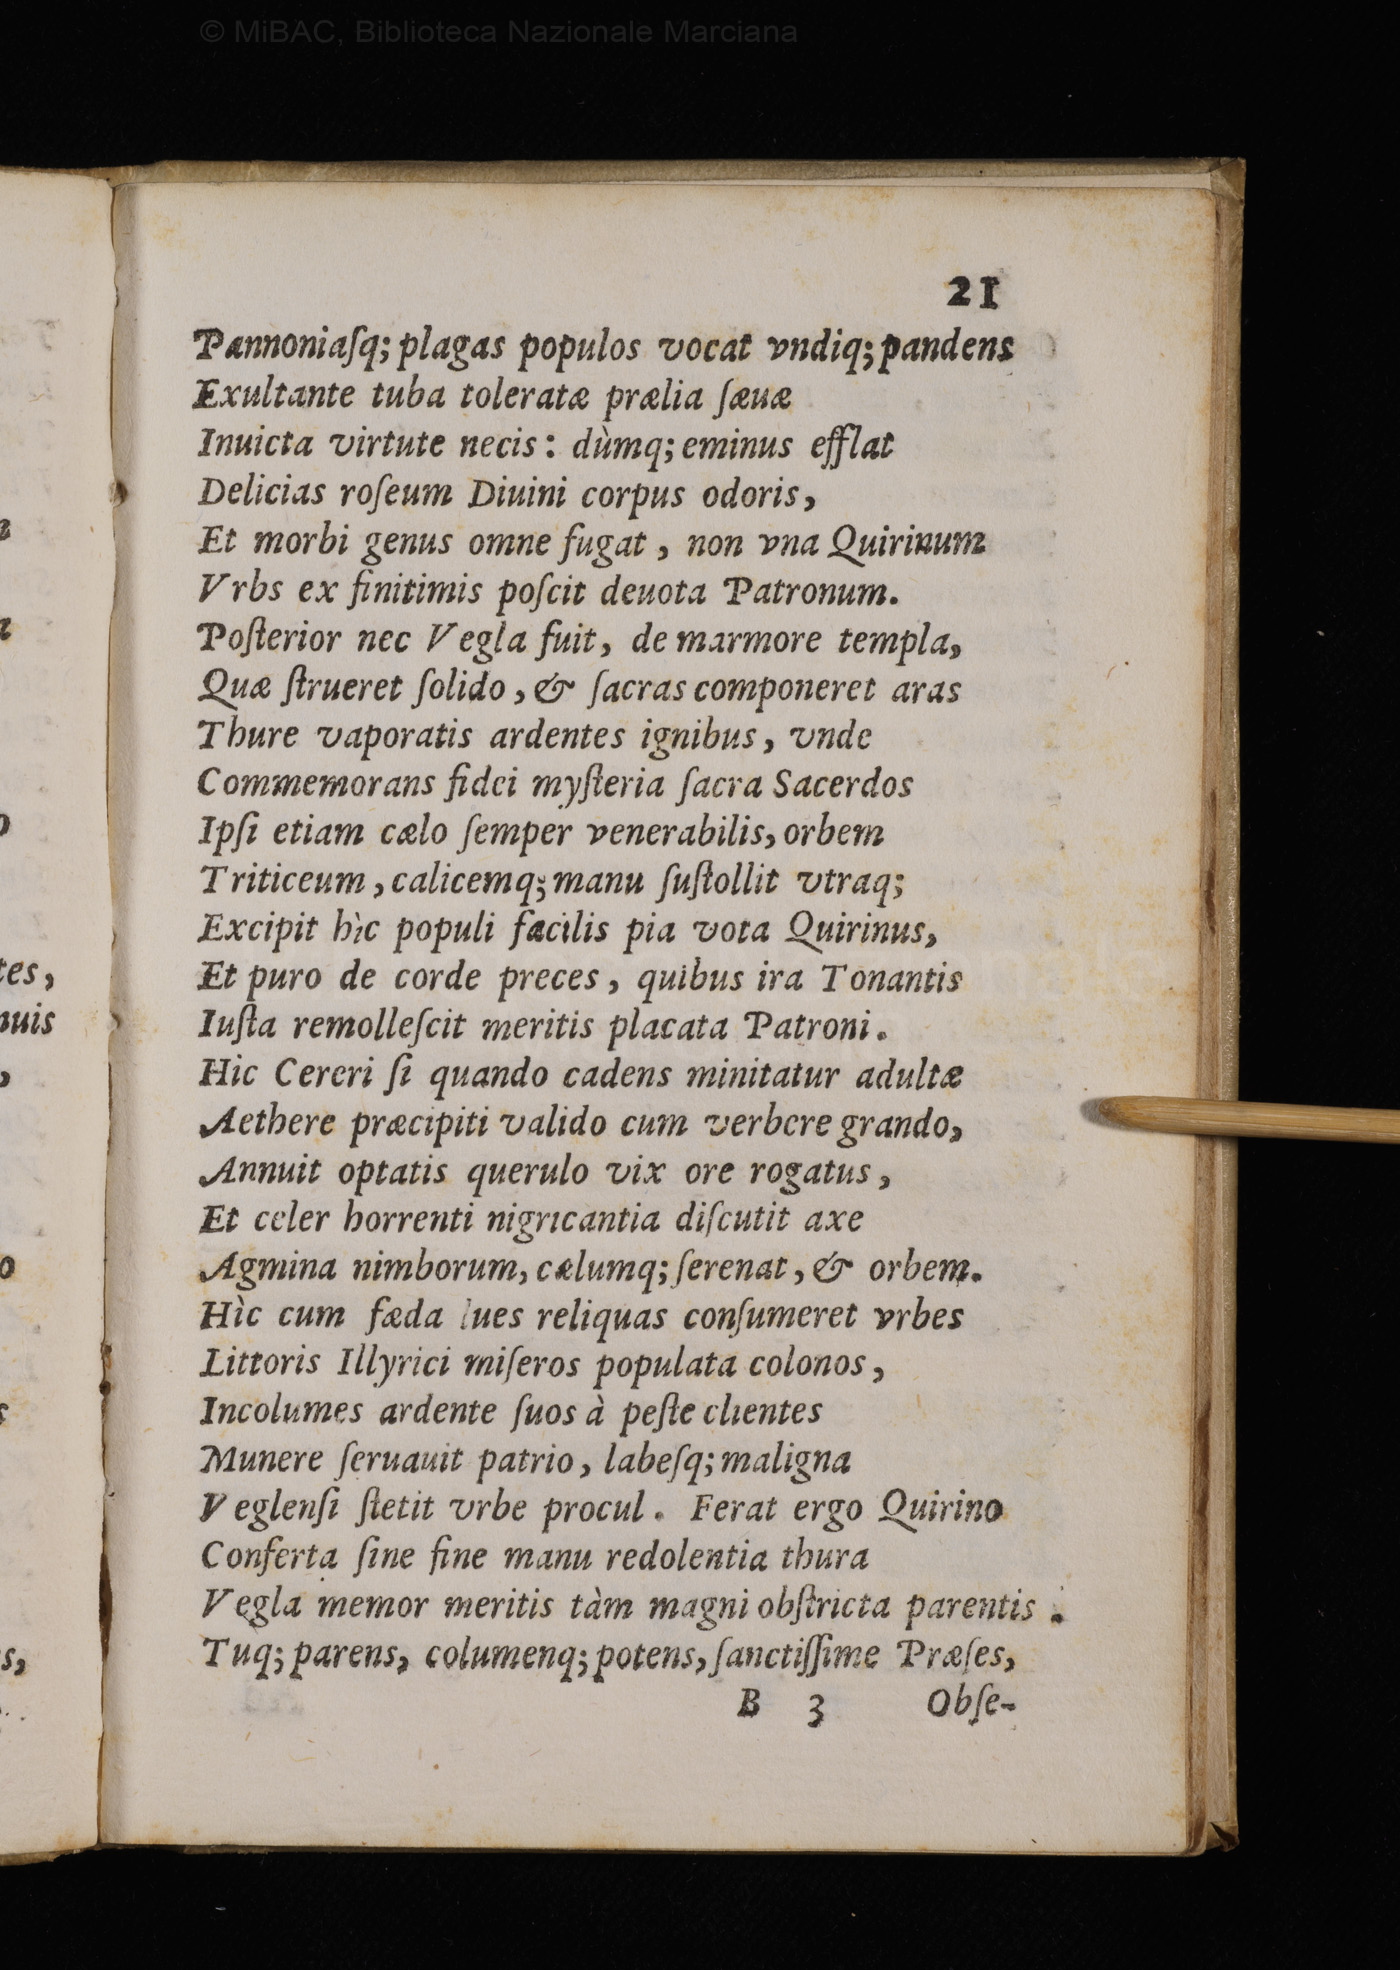 © MiBAC, Biblioteca Nazionale Marciana
21
Pannoniaſq; plagas populos vocat vndiq; pandens
Exultante tuba toleratæ prælia ſæuæ
Inuicta virtute necis: dùmq; eminus efflat
Delicias roſeum Diuini corpus odoris,
Et morbi genus omne fugat, non vna Quirinum
Vrbs ex finitimis poſcit deuota Patronum.
Poſterior nec Vegla fuit, de marmore templa,
Quæ ſtrueret ſolido, & ſacras componeret aras
Thure vaporatis ardentes ignibus, vnde
Commemorans fidei myſteria ſacra Sacerdos
Ipſi etiam cælo ſemper venerabilis, orbem
Triticeum, calicemq; manu ſuſtollit vtraq;
Excipit hìc populi facilis pia vota Quirinus,
Et puro de corde preces, quibus ira Tonantis
Iuſta remolleſcit meritis placata Patroni.
Hic Cereri ſi quando cadens minitatur adultæ
Aethere præcipiti valido cum verbere grando,
Annuit optatis querulo vix ore rogatus,
Et celer horrenti nigricantia diſcutit axe
Agmina nimborum, cælumq; ſerenat, & orbem.
Hìc cum fæda lues reliquas conſumeret vrbes
Littoris Illyrici miſeros populata colonos,
Incolumes ardente ſuos à peſte clientes
Munere ſeruauit patrio, labeſq; maligna
Veglenſi ſtetit vrbe procul. Ferat ergo Quirino
Conferta ſine fine manu redolentia thura
Vegla memor meritis tàm magni obſtricta parentis.
Tuq; parens, columenq; potens, ſanctiſſime Præſes,
B 3 Obſe-